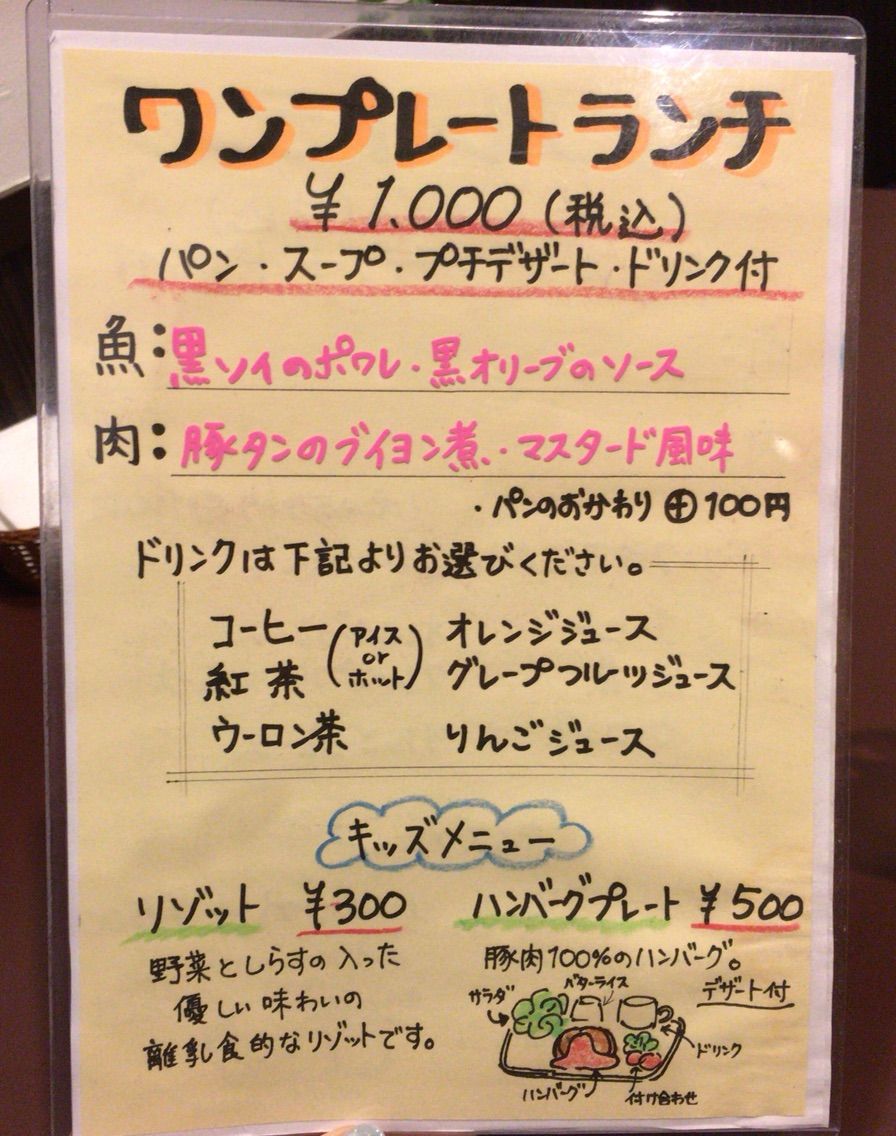 ワンプレートランチ
¥1.000(税込)
パン・スープ・プチデザート・ドリンク付
魚:黒ソイのポワレ・黒オリーブのソース
肉:豚タンのブイヨン煮・マスタード風味
・パンのおかわり ㊉100円
ドリンクは下記よりお選びください。
コーヒー(アイス or ホット) オレンジジュース
紅茶 グレープフルーツジュース
ウーロン茶 りんごジュース
キッズメニュー
リゾット ¥300
野菜としらすの入った
優しい味わいの
離乳食的なリゾットです。
ハンバーグプレート ¥500
豚肉100%のハンバーグ。
デザート付
サラダ
バターライス
ドリンク
ハンバーグ
付け合わせ